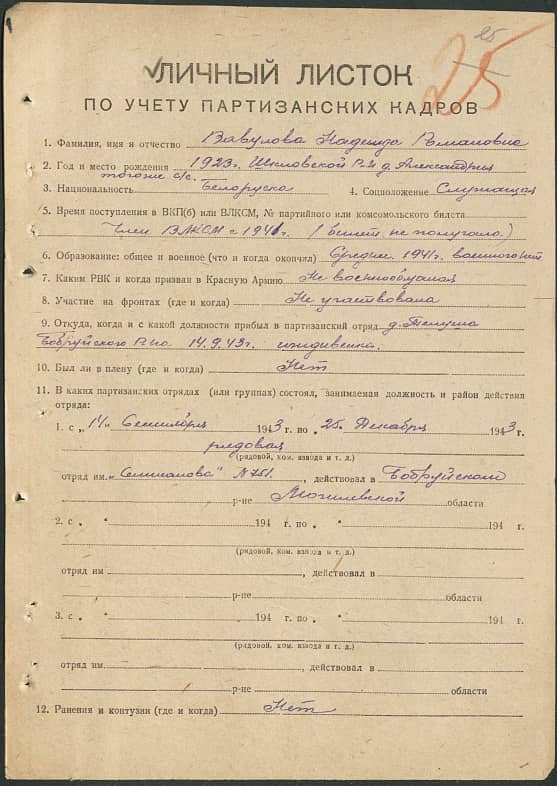 25
25
ЛИЧНЫЙ ЛИСТОК
ПО УЧЕТУ ПАРТИЗАНСКИХ КАДРОВ
1. Фамилия, имя и отчество Вавулова Надежда Романовна
2. Год и место рождения 1923г. Шкловской р-н д. Александрия
тогоже с/с.
3. Национальность Белоруска 4. Соцположение Служащая
5. Время поступления в ВКП(б) или ВЛКСМ, № партийного или комсомольского билета
Член ВЛКСМ с 1941г. (билет не получала.)
6. Образование: общее и военное (что и когда окончил) Среднее, 1941г. военного нет
7. Каким РВК и когда призван в Красную Армию Не военнообязаная
8. Участие на фронтах (где и когда) Не участвовала
9. Откуда, когда и с какой должности прибыл в партизанский отряд д.
Бобруйского р-на 14.9.43г. иждивенка.
10. Был ли в плену (где и когда) Нет
11. В каких партизанских отрядах (или группах) состоял, занимаемая должность и район действия
отряда:
1. с „14" Сентября 1943 г. по „25" Декабря 1943 г.
рядовая
(рядовой, ком. взвода и т. д.)
отряд им. № 751, действовал в Бобруйском
р-не Могилевской области
2. с „ " 194 г. по „ " 194 г.
(рядовой, ком. взвода и т. д.)
отряд им , действовал в
р-не области
3. с „ " 194 г. по „ " 194 г.
(рядовой, ком. взвода и т. д.)
отряд им. , действовал в
р-не области
12. Ранения и контузии (где и когда) Нет